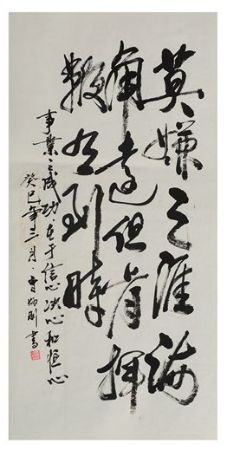 莫嫌天涯海
角遠但肯揮
鞭有到時
事業之成功在于信心決心和恒心
癸巳年三月 書